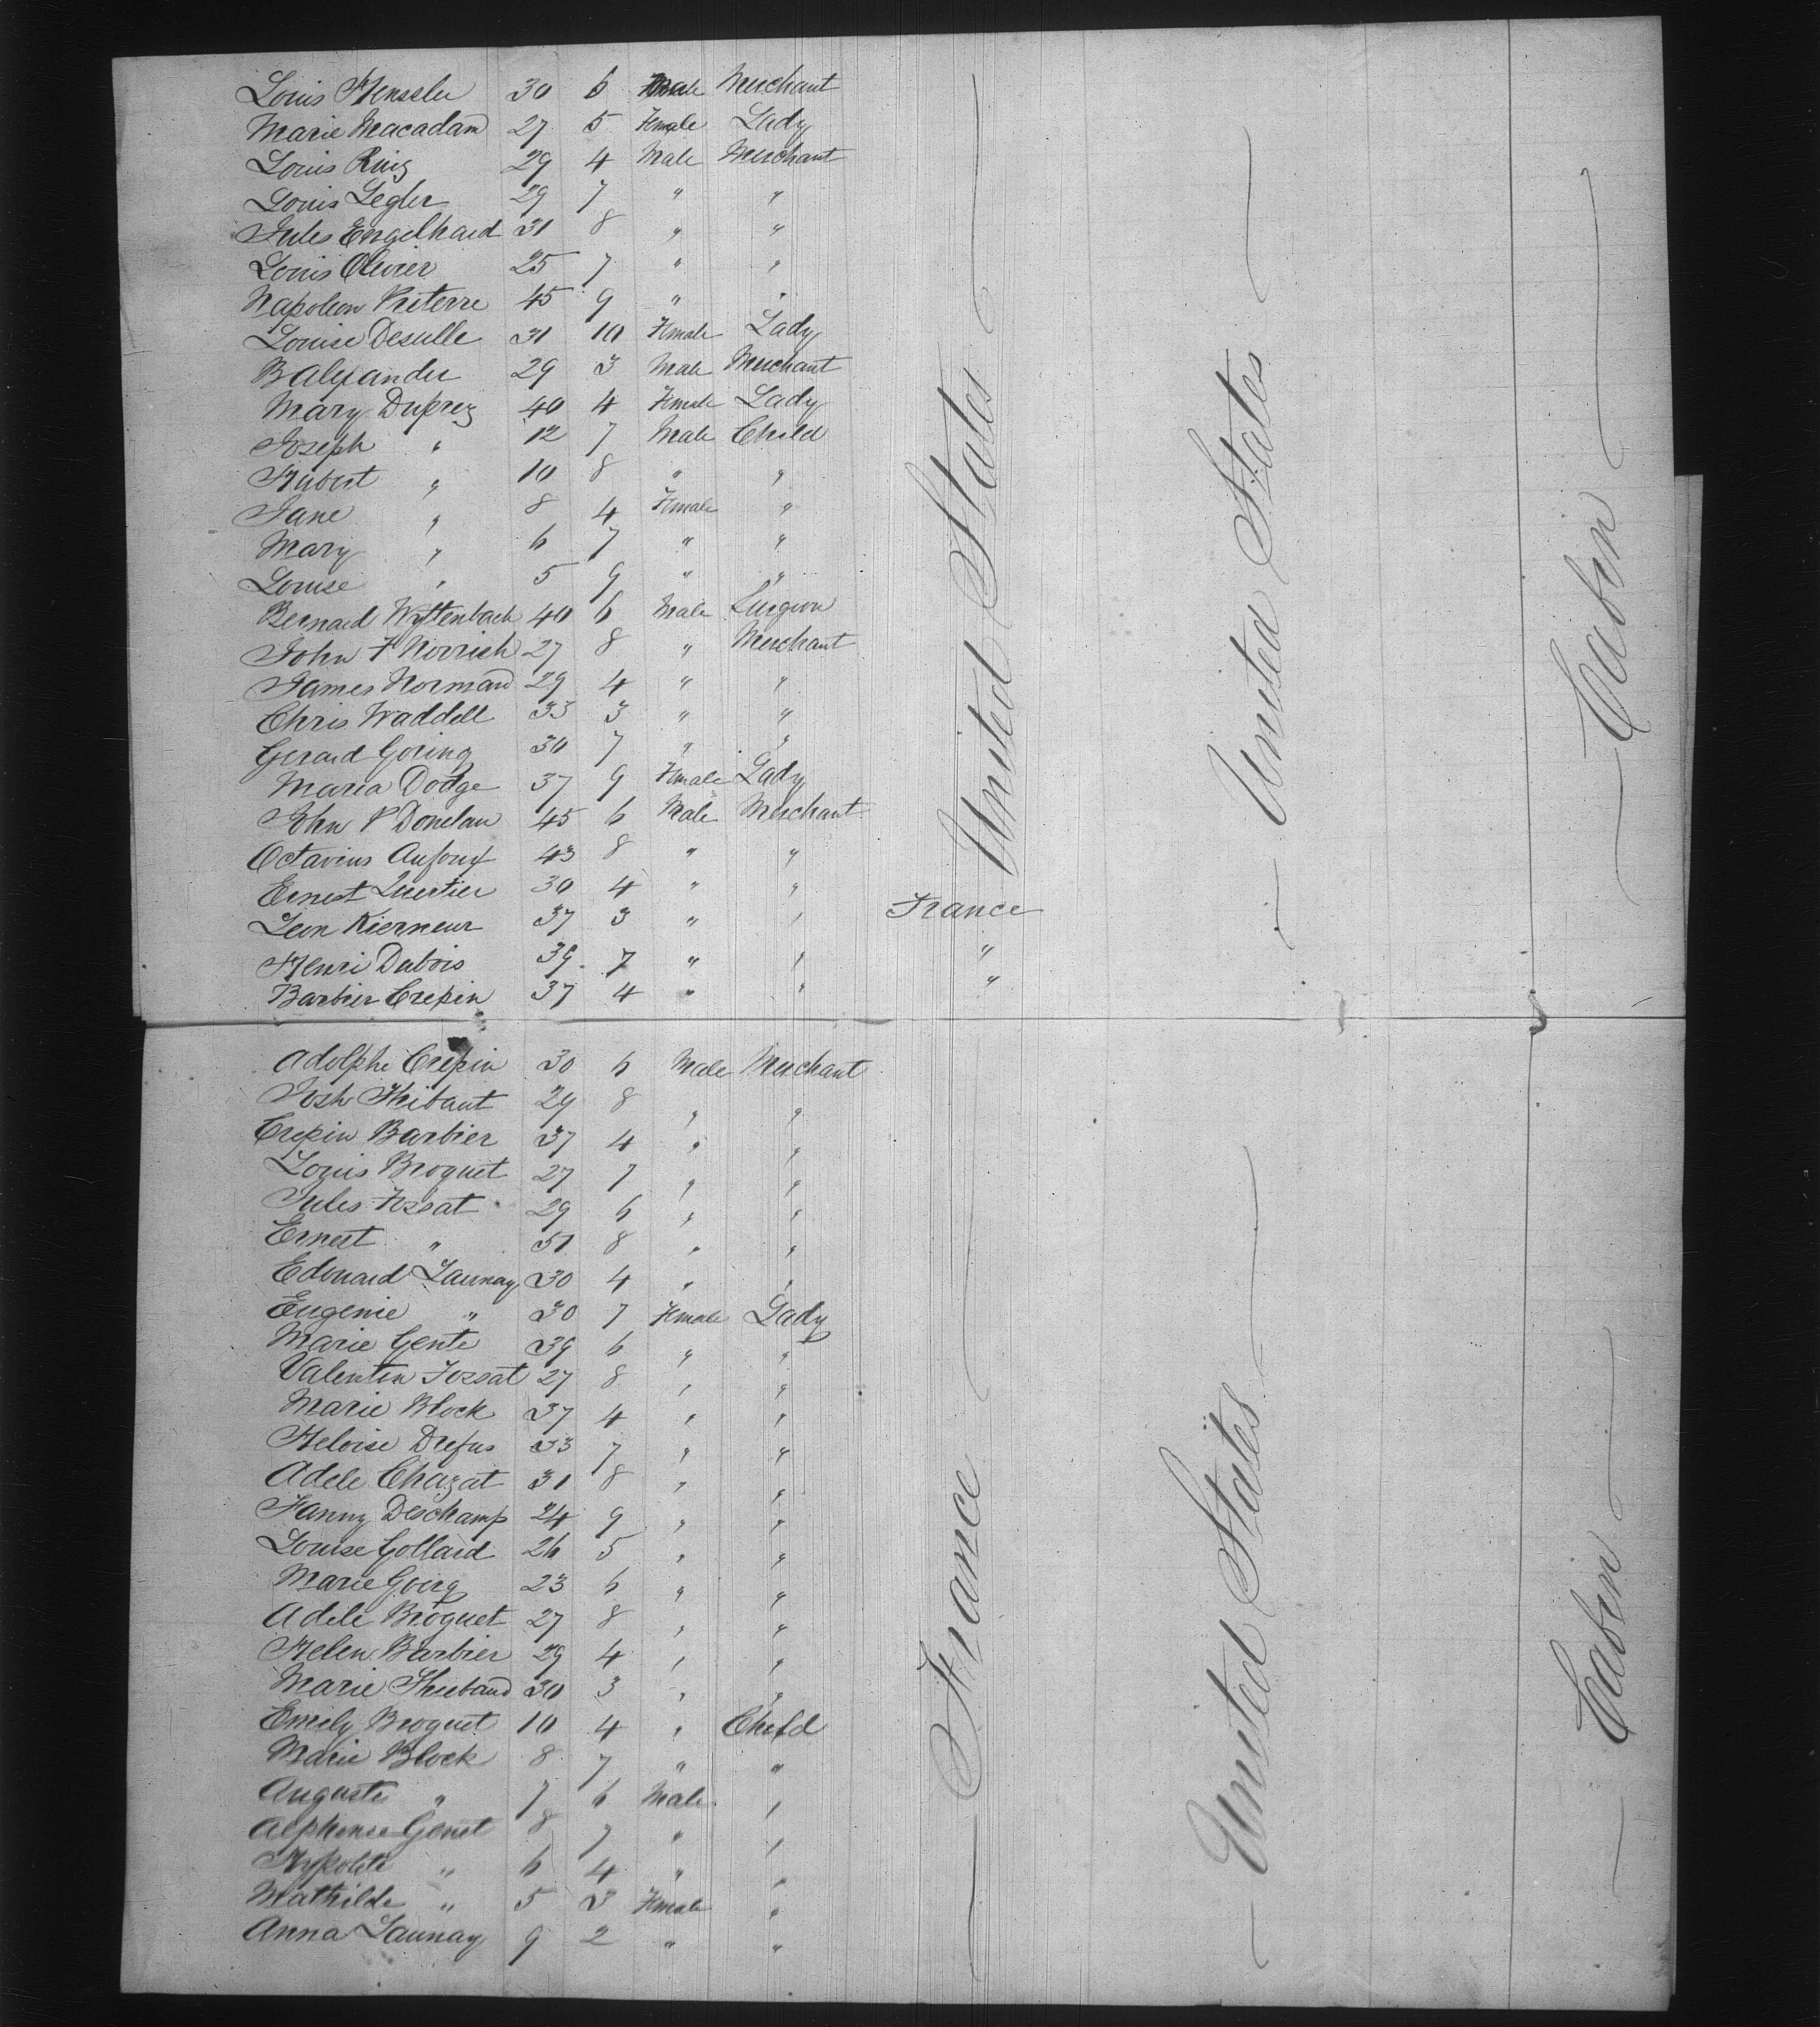 Louis Hensseler 30 6 Male Merchant
Marie Macadam 27 5 Female Lady
Louis Ruiz 29 4 Male Merchant
Louis Legler 29 7 " "
Jules Engelhard 31 8 " "
Louis Olivier 25 7 " "
Napoleon 45 9 " "
Louise Desulle 31 10 Female Lady
B Alexander 29 3 Male Merchant
Mary Duprez 40 4 Female Lady
Joseph " 12 7 Male Child
Hubert " 10 8 " "
Jane " 8 4 Female "
Mary " 6 7 " "
Louise " 5 9 " "
Bernard Wyttenbach 40 6 Male Surgeon
John F Norrish 27 8 " Merchant
James Normand 29 4 " "
Chris Waddell 33 3 " "
Gerard Goring 30 7 " "
Maria Dodge 37 9 Female Lady
John P Donelan 45 6 Male Merchant
Octavius 43 8 " "
Ernest Quertier 30 4 " "
United States
United States
Cabin
Leon Kierneur 37 3 " " France
Henri Dubois 39 7 " " "
Barbier Crepin 37 4 " " "
Adolphe Crepin 30 6 Male Merchant
Josh Thibaut 29 8 " "
Crepin Barbier 37 4 " "
Louis Broquet 27 7 " "
Jules Fossat 29 6 " "
Ernest " 31 8 " "
Edouard Launay 30 4 " "
Eugenie " 30 7 Female Lady
Marie Gente 39 6 " "
Valentin Fossat 27 8 " "
Marie Block 37 4 " "
Heloise Drefus 33 7 " "
Adele Chazat 31 8 " "
Fanny Deschamp 24 9 " "
Louise Gollard 26 5 " "
Marie Goirg 23 6 " "
Adele Broquet 27 8 " "
Helen Barbier 29 4 " "
Marie Thiebaud 30 3 " "
Emely Broquet 10 4 " Child
Marie Block 8 7 " "
Auguste " 7 6 Male "
Alphonse Genet 8 7 " "
Hypolite " 6 4 " "
Mathilde " 5 3 Female "
Anna Launay 9 2 " "
France
United States
Cabin